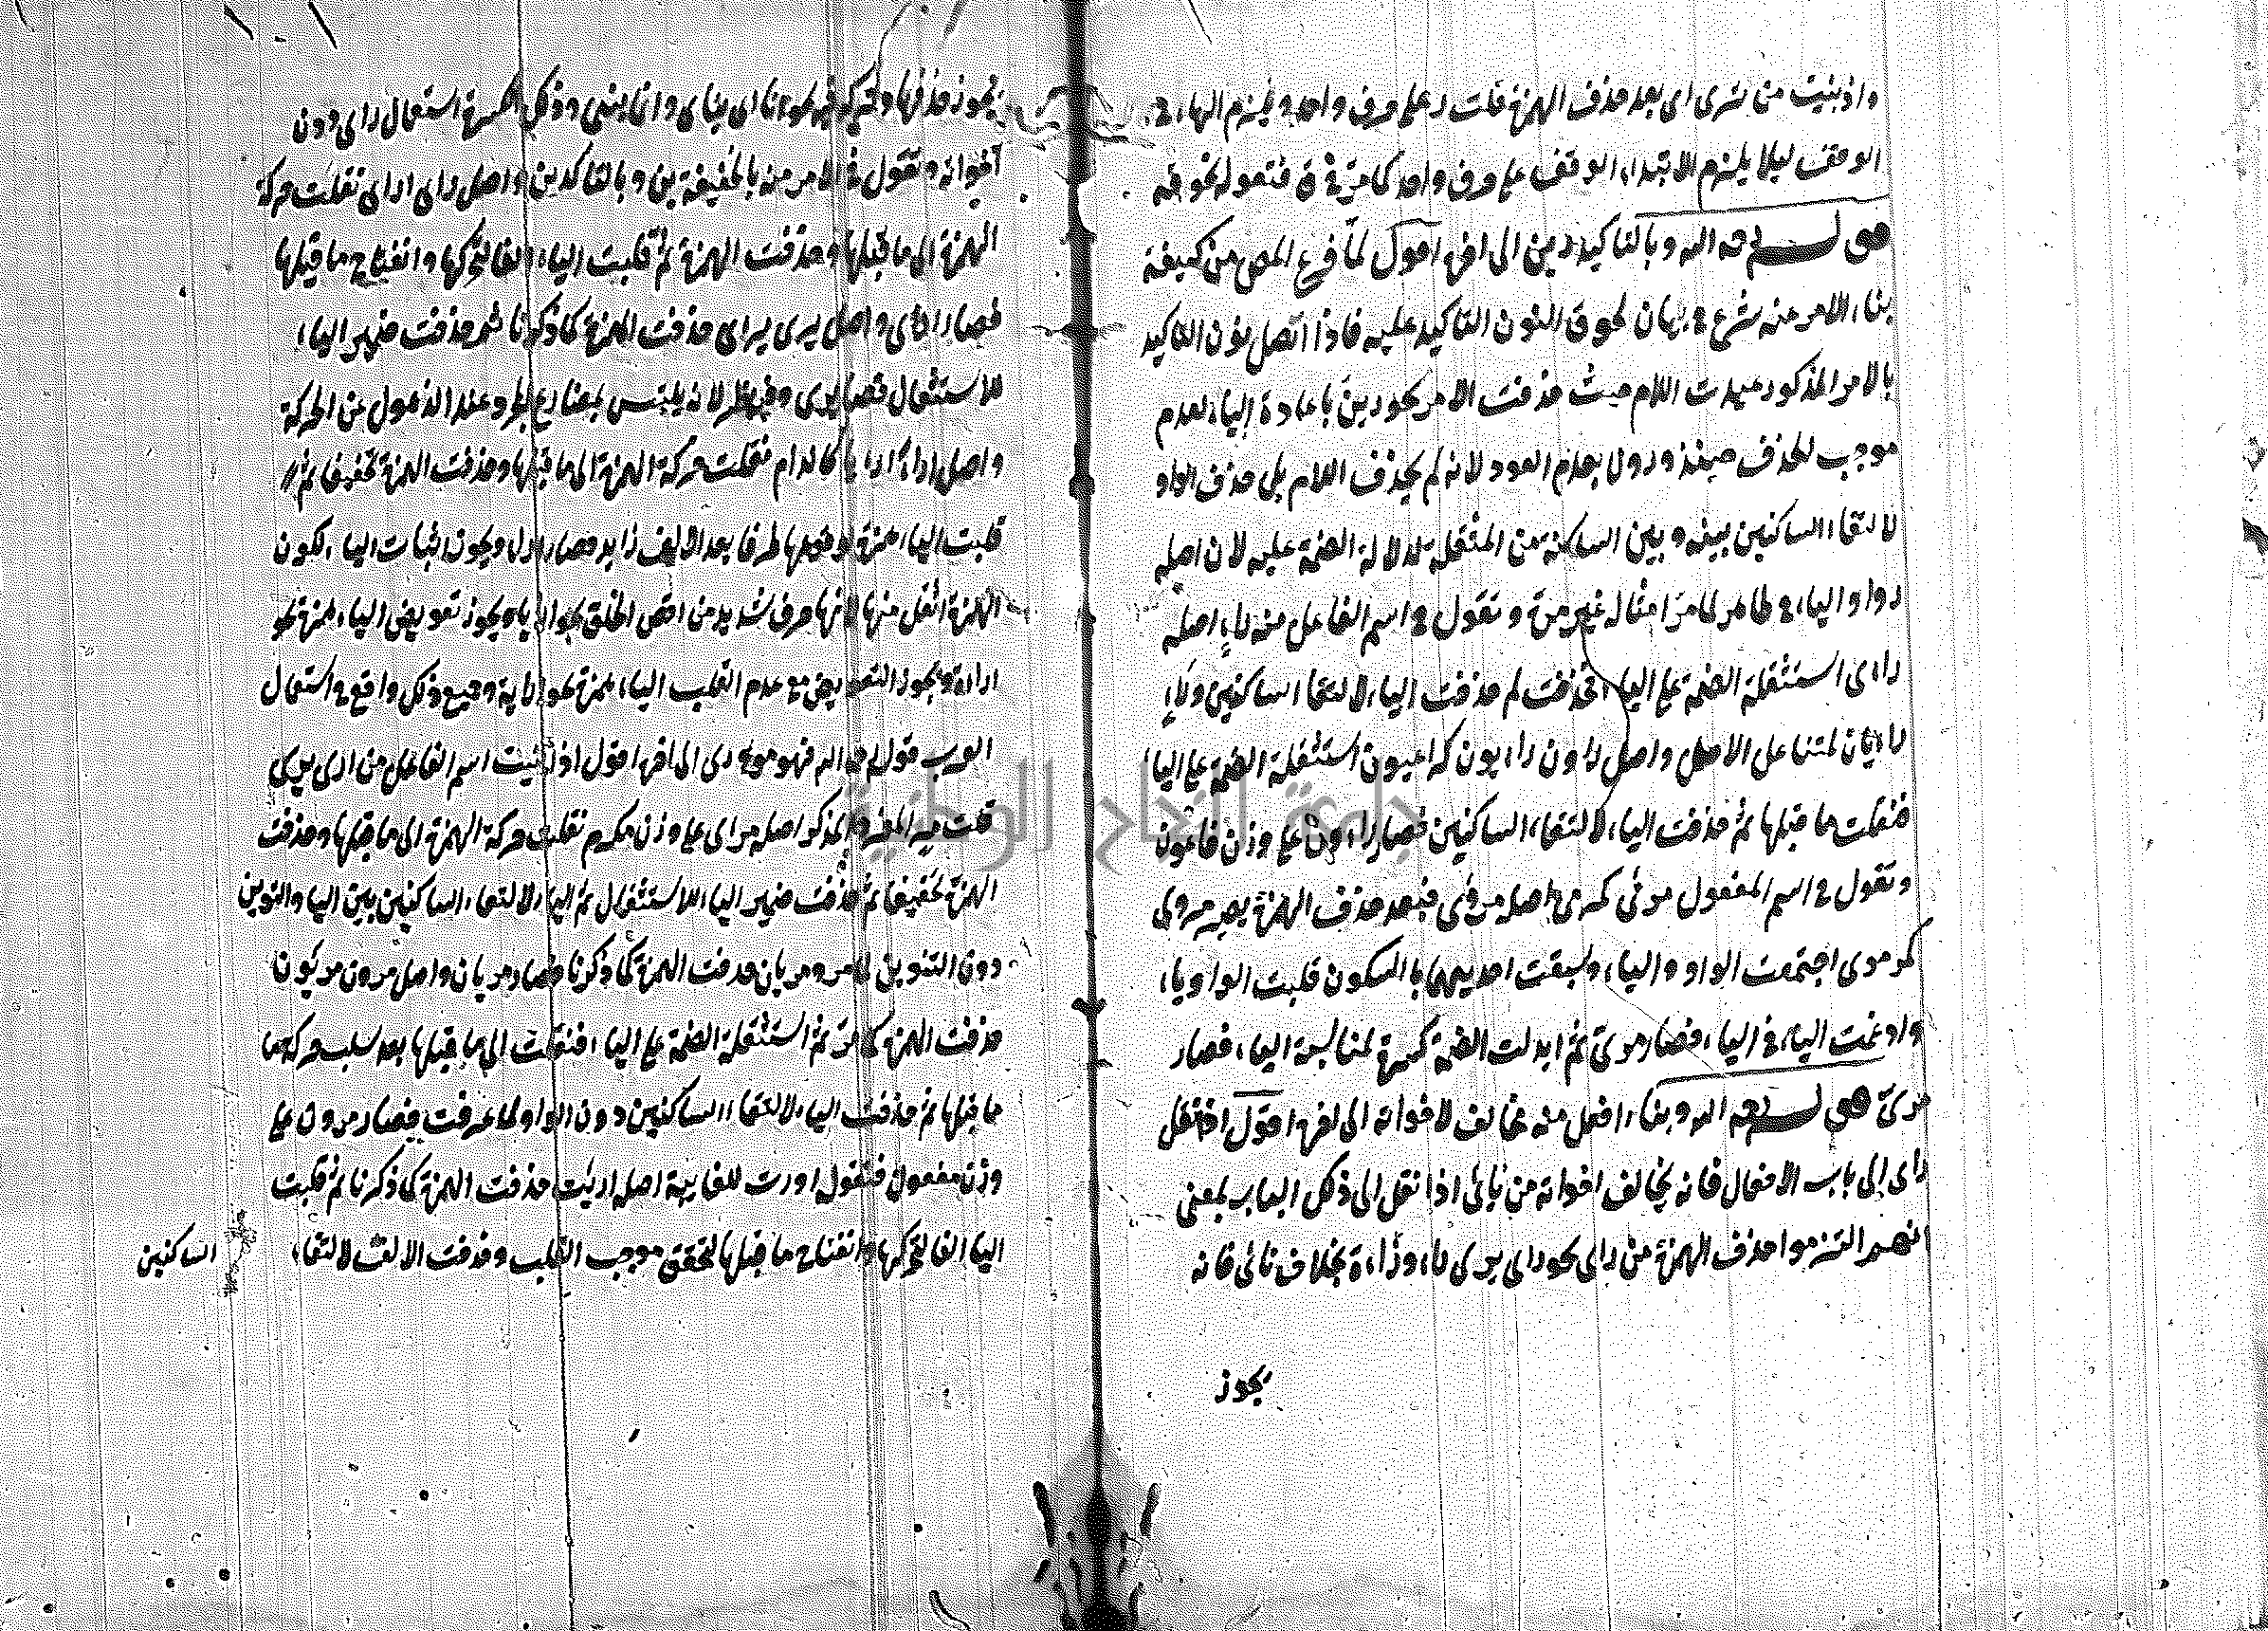 واذ بنيت من ترى اى بعد حذف الهمزة قلت ر على حرف واحد ويلزم الهاء فى
الوقف ليلا يلزم الابتداء الوقف على حرف واحد كما مرّ فى ق فتقوله نحو قه
قوله رحمه الله وبالتاكيد رين الى اخره اقول لمّا فرغ المص من كيفية
بناء الامر منه شرع فى بيان لحوق النون التاكيد عليه فاذا اتّصل نون التاكيد
بالامر المذكور اعيدت اللام حيث حذفت الامر نحو رينّ باعادة الياء لعدم
موجب للحذف حينئذ ورون بعدم العود لانه لم يحذف اللام بل حذف الواو
لالتقاء الساكنين بينه وبين الساكنة من المثقلة لدلالة الضمة عليه لان اصله
روا والياء فى ظاهر لما مرّ امثاله غير مرّة وتقول فى اسم الفاعل منه راءٍ اصله
راءى استثقلة الضمة على الياء فحذفت ثم حذفت الياء لالتقاء الساكنين وراءٍ
راءيان لمتنا على الاصل واصل راءون راءيون كراعيون استثقلة الضمة على الياء
فنقلت ما قبلها ثم حذفت الياء لالتقاء الساكنين فصار راءون على وزن فاعون
وتقول فى اسم المفعول مرئى كمرمى اصله مرؤى فبعد حذف الهمزة يصير مروى
كمرموى اجتمعت الواو والياء وسبقت احديهما بالسكون قلبت الواو ياء
وادغمت الياء فى الياء فصار مرىّ ثم ابدلت الضمة كسرة لمناسبة الياء فصار
مرىّ قوله رحمه الله وبناء افعل منه مخالف لاخواته الى اخره اقول اذا نقل
راى الى باب الافعال فانه يخالف اخواته من نائى اذا نقل الى ذلك الباب بمعنى
انهم التزموا حذف الهمزة من راى نحو راى يرى راء وراءة بخلاف نائى فانه
يجوز
يجوز حذفها وتركها نحو نا اى يناى وانا ينئى وذلك لكسرة استعمال راى دون
اخواته وتقول فى الامر منه بالخفيفة رين وبالتاكدين واصل راى اراى نقلت حركة
الهمزة الى ما قبلها وحذفت الهمزة ثم قلبت الياء الفا لتحركها وانفتاح ما قبلها
فصار ارى واصل يرى يراى حذفت الهمزة كما ذكرنا ثم حذفت ضمير الياء
للاستثقال فصار يرى وفيه نظر لانه يلتبس بمضارع المجرد عند الذهول عن الحركة
واصل اراءً ارايا كالدام نقلت حركة الهمزة الى ما قبلها وحذفت الهمزة تخفيفا ثم
قلبت الياء همزة لوقوعها طرفا بعد الالف زايد فصار اول ويجوز اثبات الياء لكون
الهمزة اثقل منها لانها حرف شديد من اقصى الخلق نحو ارايا ويجوز تعويض الياء همزة نحو
اراءة ويجوز التعويض مع عدم القلب الياء همزة نحو اراية وجميع ذلك واقع فى استعمال
العرب قوله رحمه الله فهو مرى الى اخره اقول اذا بنيت اسم الفاعل من ارى يرى
قلت مرٍ المفرد المذكر اصله مراى على وزن مكرم نقلت حركة الهمزة الى ما قبلها وحذفت
الهمزة تخفيفا ثم حذفت ضمير الياء للاستثقال ثم الياء لالتقاء الساكنين بين الياء والتنوين
دون التنوين لما مر ومريان حدفت الهمزة كما ذكرنا فصار مريان واصل مرون مرئيون
حذفت الهمزة كما مرّ ثم استثقلة الضمة على الياء فنقلت الى ما قبلها بعد سلب حركة ما
ما قبلها ثم حذفت الياء لالتقاء الساكنين دون الواو لما عرفت فصار مرون على
وزن مفعون فتقول اورت للغايبة اصله ارئيت حذفت الهمزة كما ذكرنا ثم قلبت
الياء الفا لتحركها وانفتاح ما قبلها لتحقق موجب القلب وحذفت الالف لالتقاء
الساكنين
جامعة النجاح الوطنية